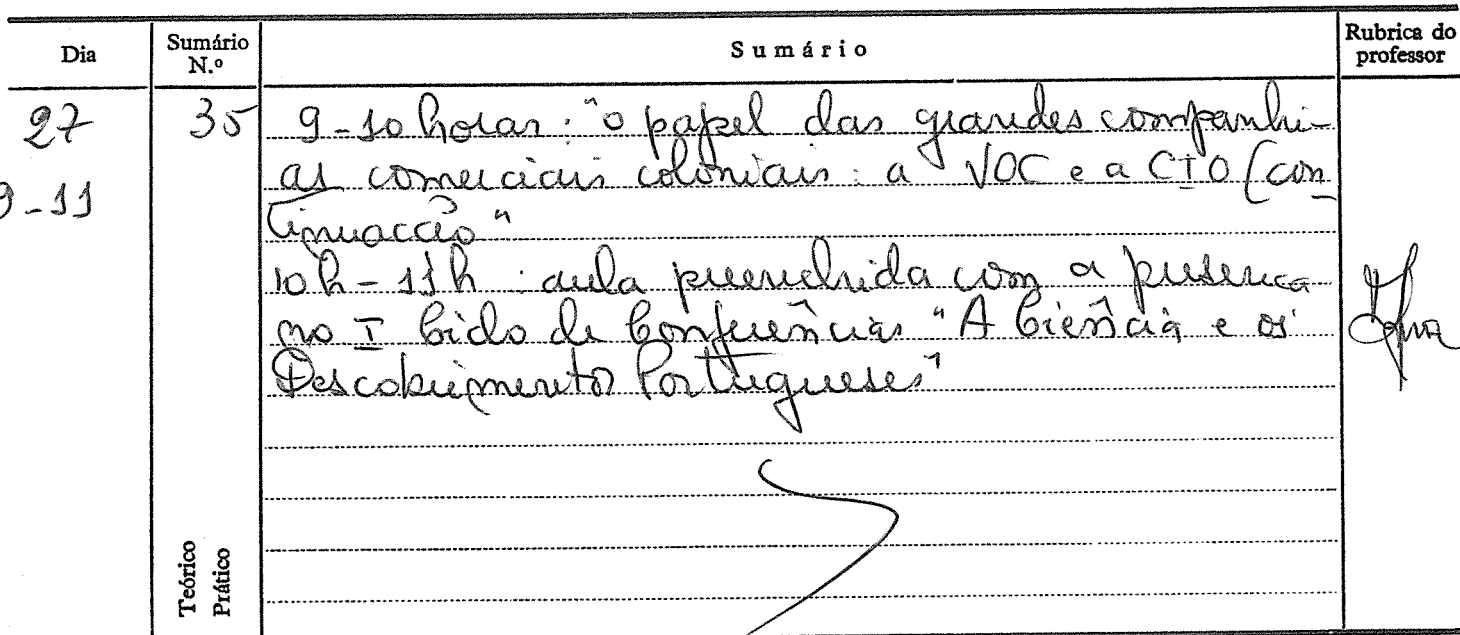 Dia Sumário N.º Sumário Rubrica do professor
27 35 9-10 horas: "o papel das grandes companhi-
9-11 as comerciais coloniais: a VOC e a CIO (con
tinuacção"
10h-11h: aula preenchida com a presença
no I Ciclo de Conferências "A Ciência e os
Descobrimentos Portugueses"
Teórico
Prático